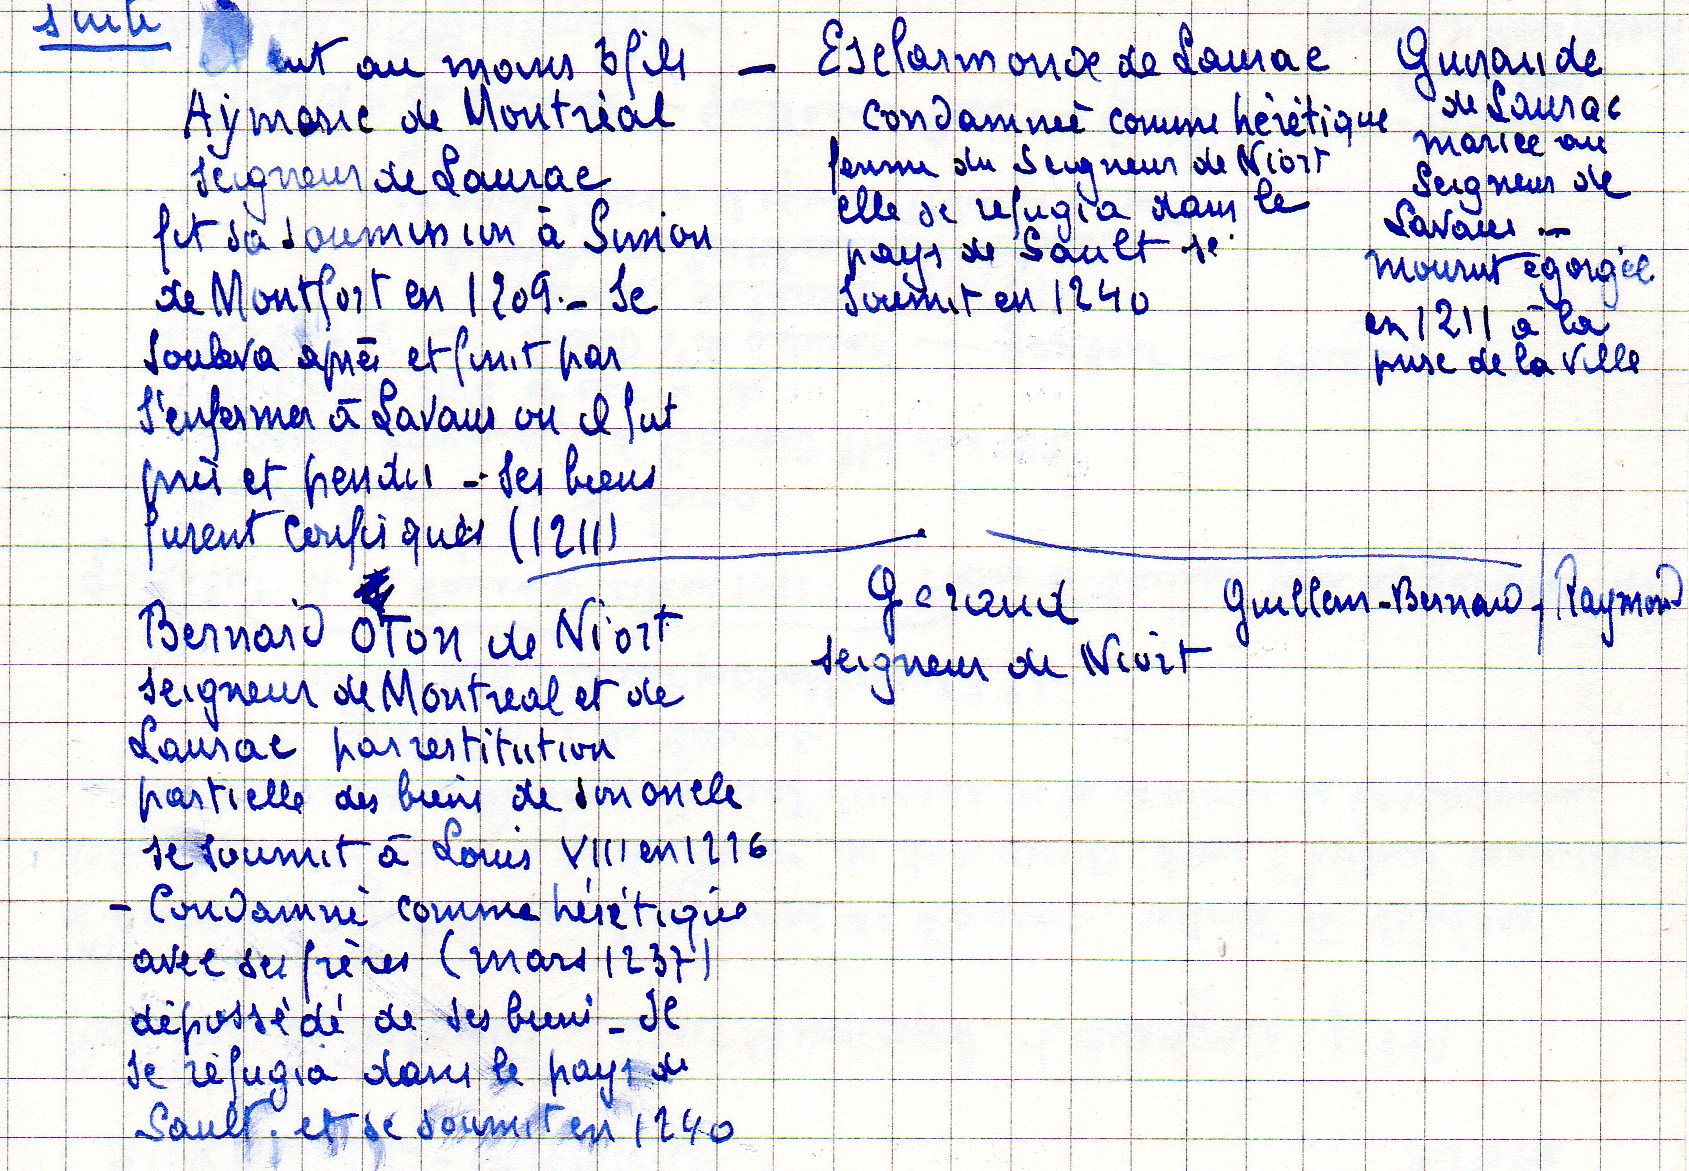 suite
eut au moins 3 fils
Aymeric de Montréal
seigneur de Laurac
fit sa soumission à Simon
de Montfort en 1209. - Se
souleva après et finit par
s'enfermer à Lavaur ou il fut
pris et pendu - ses biens
furent confisqués (1211)
- Esclarmonde de Laurac
condamnée comme hérétique
femme du Seigneur de Niort
elle se refugia dans le
pays de Sault se
soumit en 1240
Guiraude
de Laurac
mariée au
Seigneur de
Lavaur -
mourut égorgée
en 1211 à la
prise de la ville
Bernard Oton de Niort
seigneur de Montreal et de
Laurac par restitution
partielle des biens de son oncle
se soumit à Louis VIII en 1226
- Condamné comme hérétique
avec ses frères (mars 1237)
dépossédé de ses biens - Il
se réfugia dans le pays de
Sault. et se soumit en 1240
Geraud
seigneur de Niort
Guillem-Bernard / Raymond